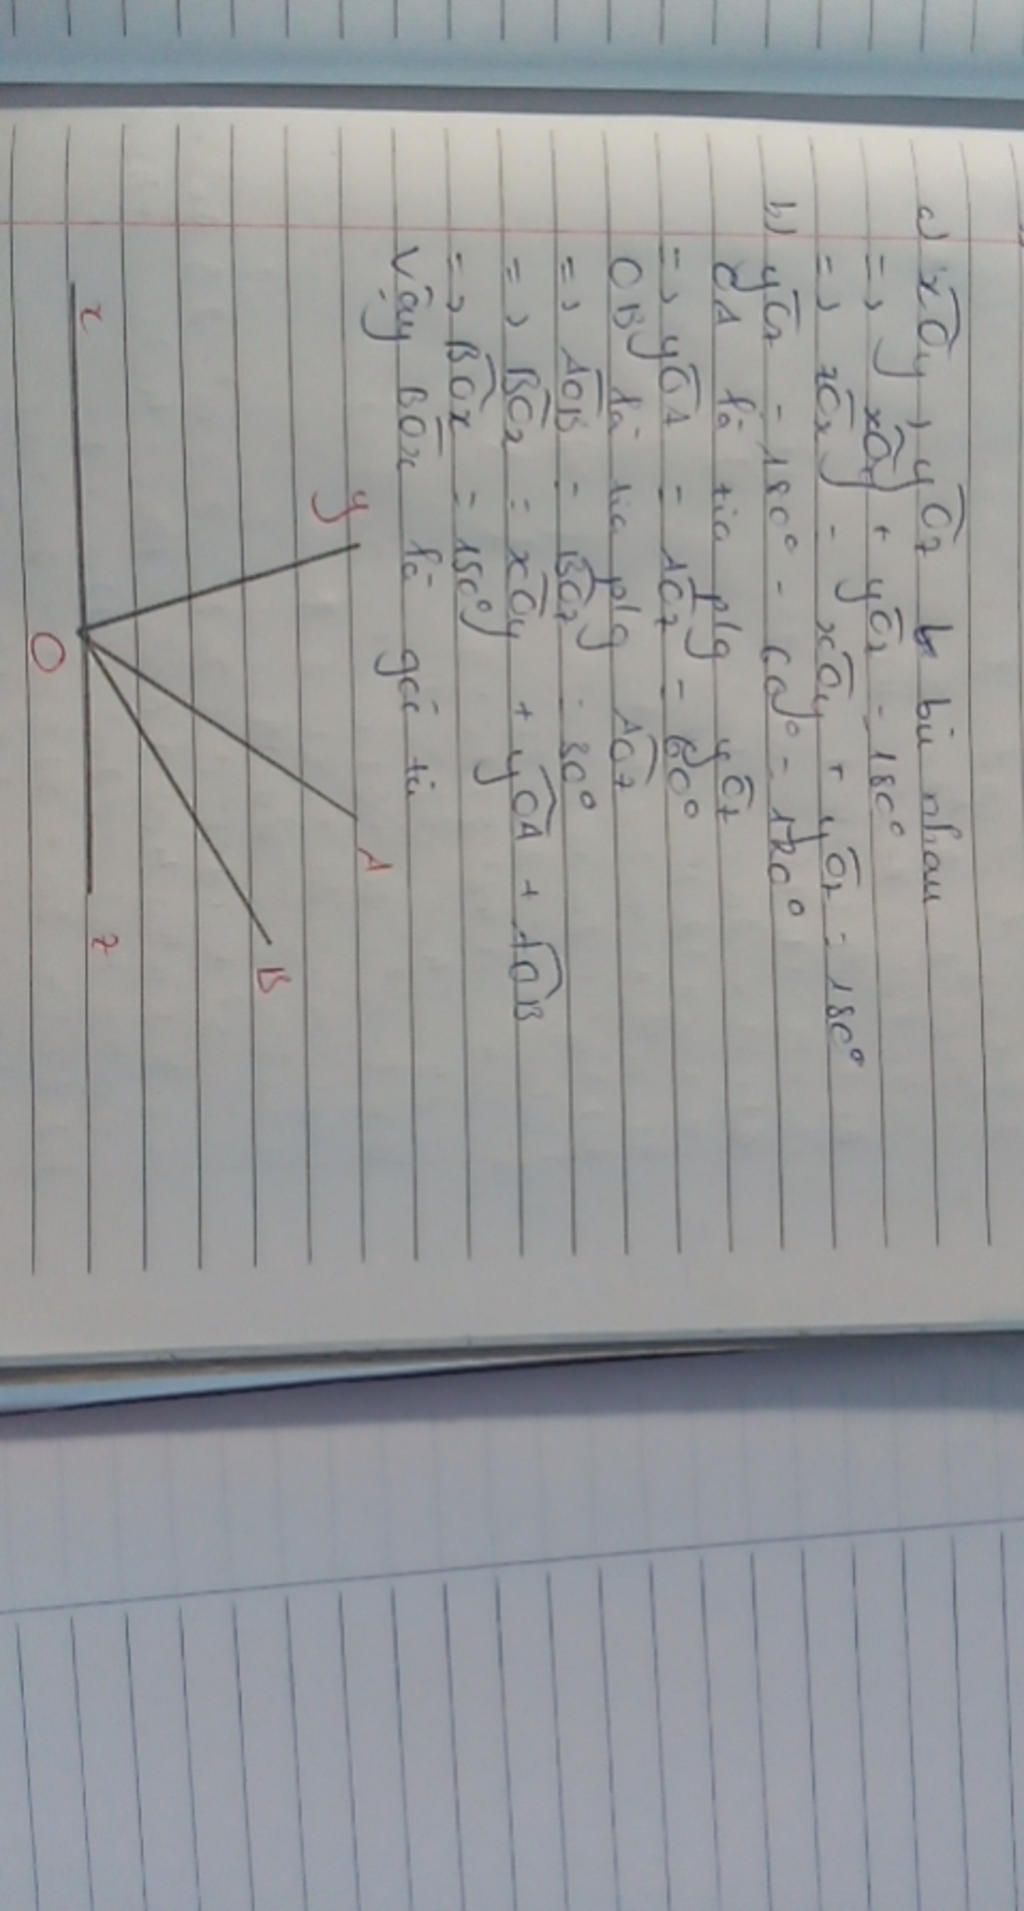 a) xOy, yOz b bù nhau
=> xOy + yOz = 180°
=> xOz = xOy + yOz = 180°
b) yOz = 180° - 60° = 120°
OA là tia p/g yOz
=> yOA = AOz = 60°
OB là tia p/g AOz
=> AOB = BOz = 30°
=> BOx = xOy + yOA + AOB
=> BOx = 150°
Vậy BOx là góc tù
x
y
O
A
B
z